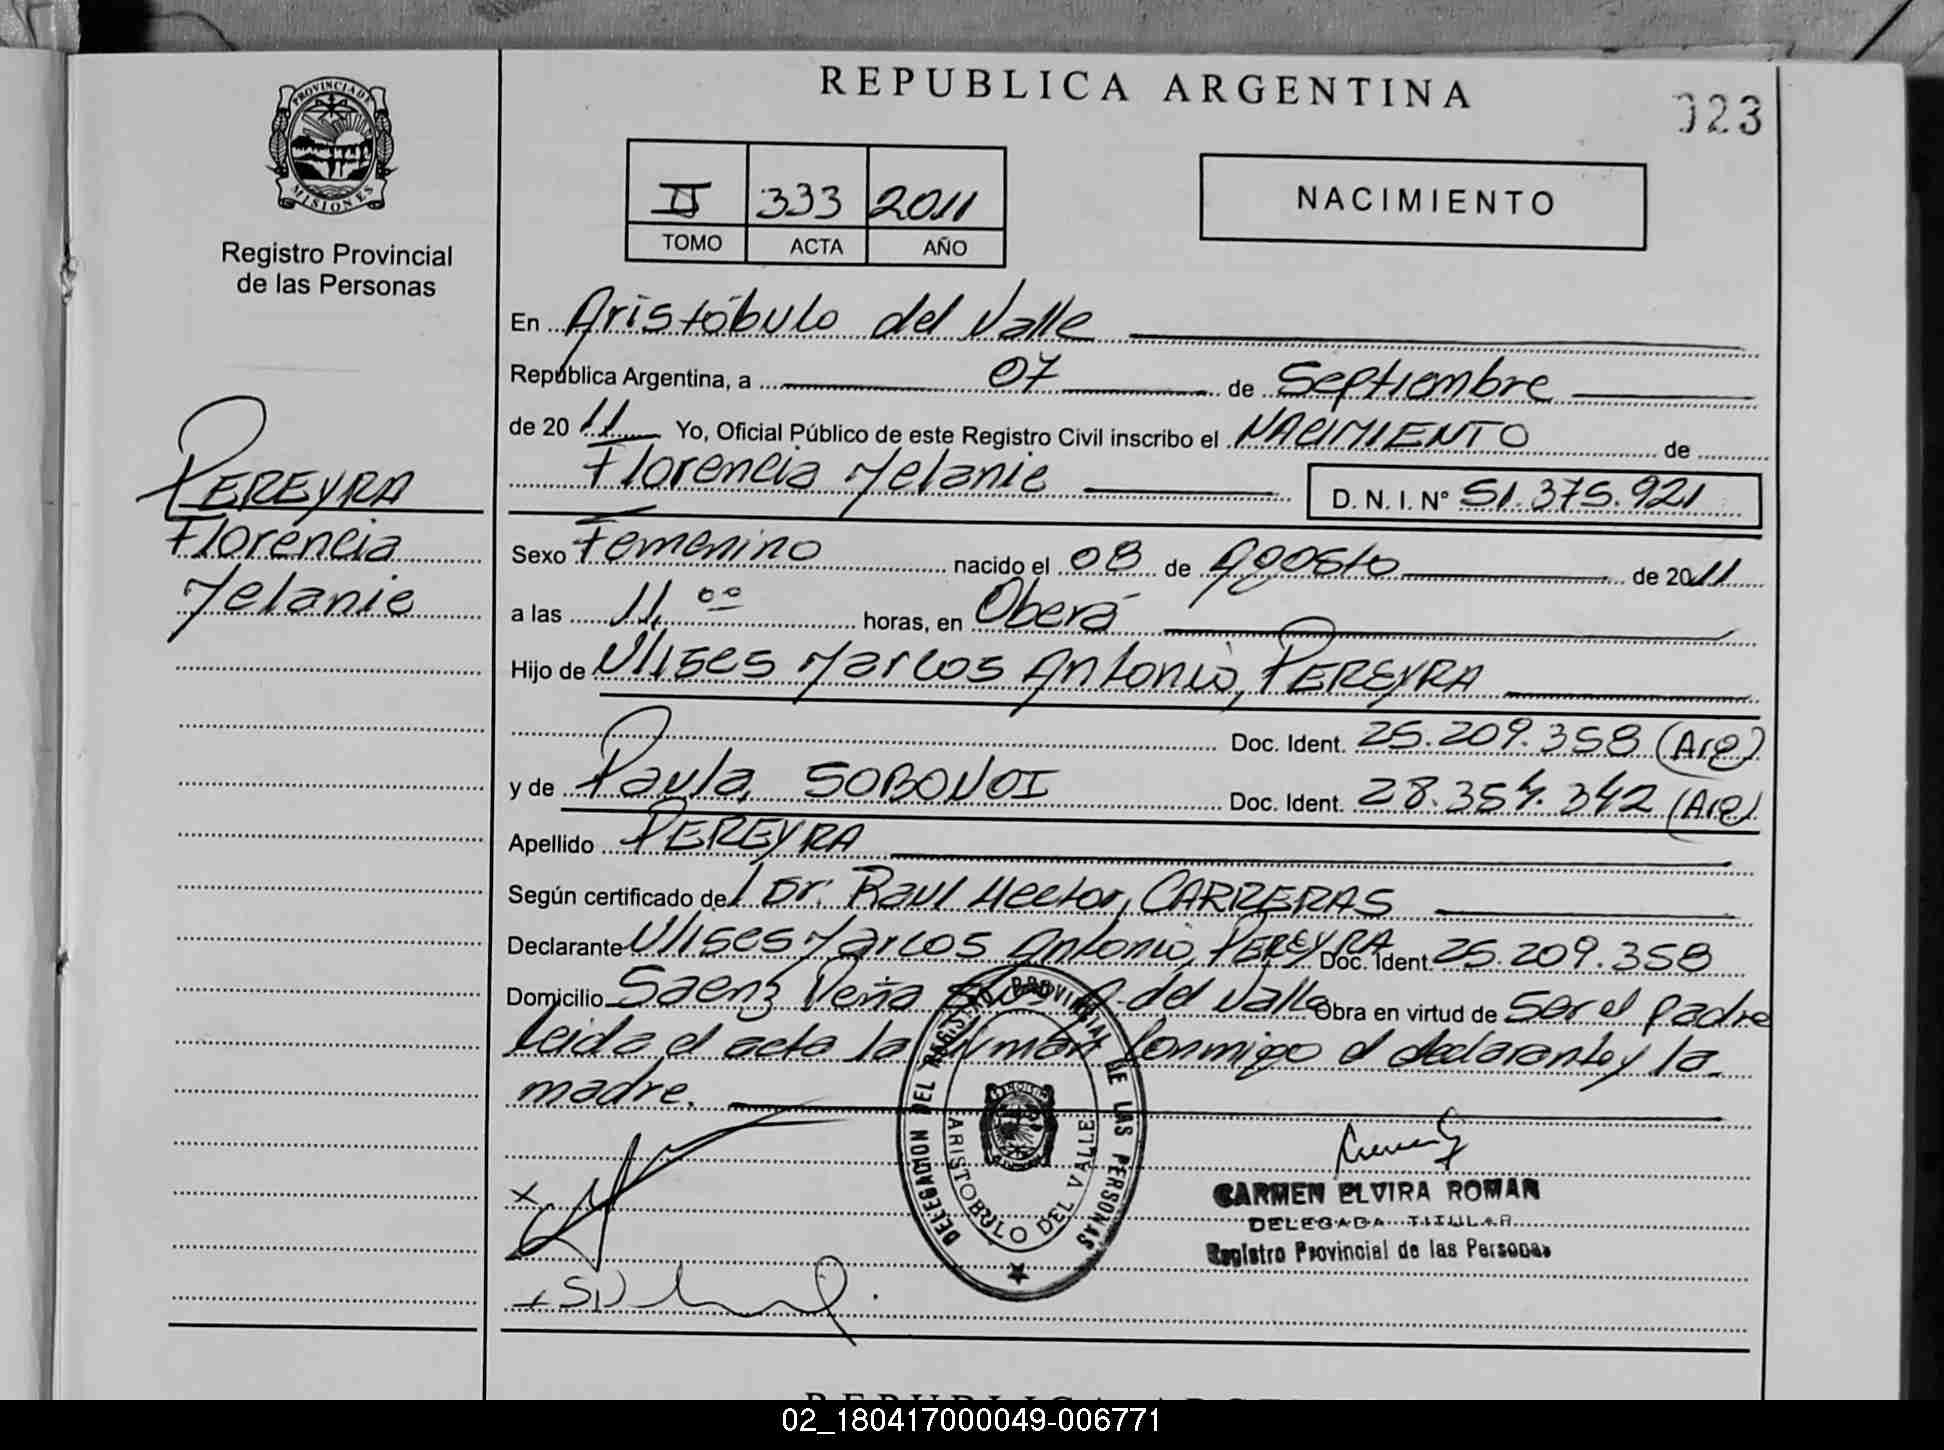 REPUBLICA ARGENTINA
023
PROVINCIA DE
MISIONES
Registro Provincial
de las Personas
II 333 2011
TOMO ACTA AÑO
NACIMIENTO
En Aristóbulo del Valle
República Argentina, a 07 de Septiembre
de 2011 Yo, Oficial Público de este Registro Civil inscribo el NACIMIENTO de
Florencia Melanie D. N. I. N° 51.375.921
PEREYRA
Florencia
Melanie
Sexo Femenino nacido el 08 de Agosto de 2011
a las 11,00 horas, en Oberá
Hijo de Ulises Marcos Antonio, PEREYRA
Doc. Ident. 25.209.358 (Arg)
y de Paula, Doc. Ident. 28.354.342 (Arg)
Apellido PEREYRA
Según certificado del Dr. Raul Hector, CARRERAS
Declarante Ulises Marcos Antonio, PEREYRA Doc. Ident. 25.209.358
Domicilio Saenz Peña A. del Valle Obra en virtud de Ser el padre
Leida el acta la firman Conmigo el declarante y la
madre.
DELEGACION DEL REGISTRO PROVINCIAL DE LAS PERSONAS
ARISTOBULO DEL VALLE
CARMEN ELVIRA ROMAN
DELEGADA TITULAR
Registro Provincial de las Personas
02_180417000049-006771